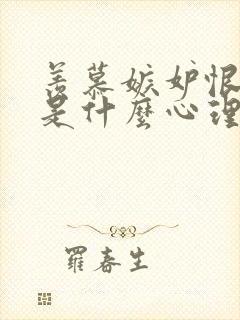 羨慕嫉妒恨
是什麼心理
羅春生